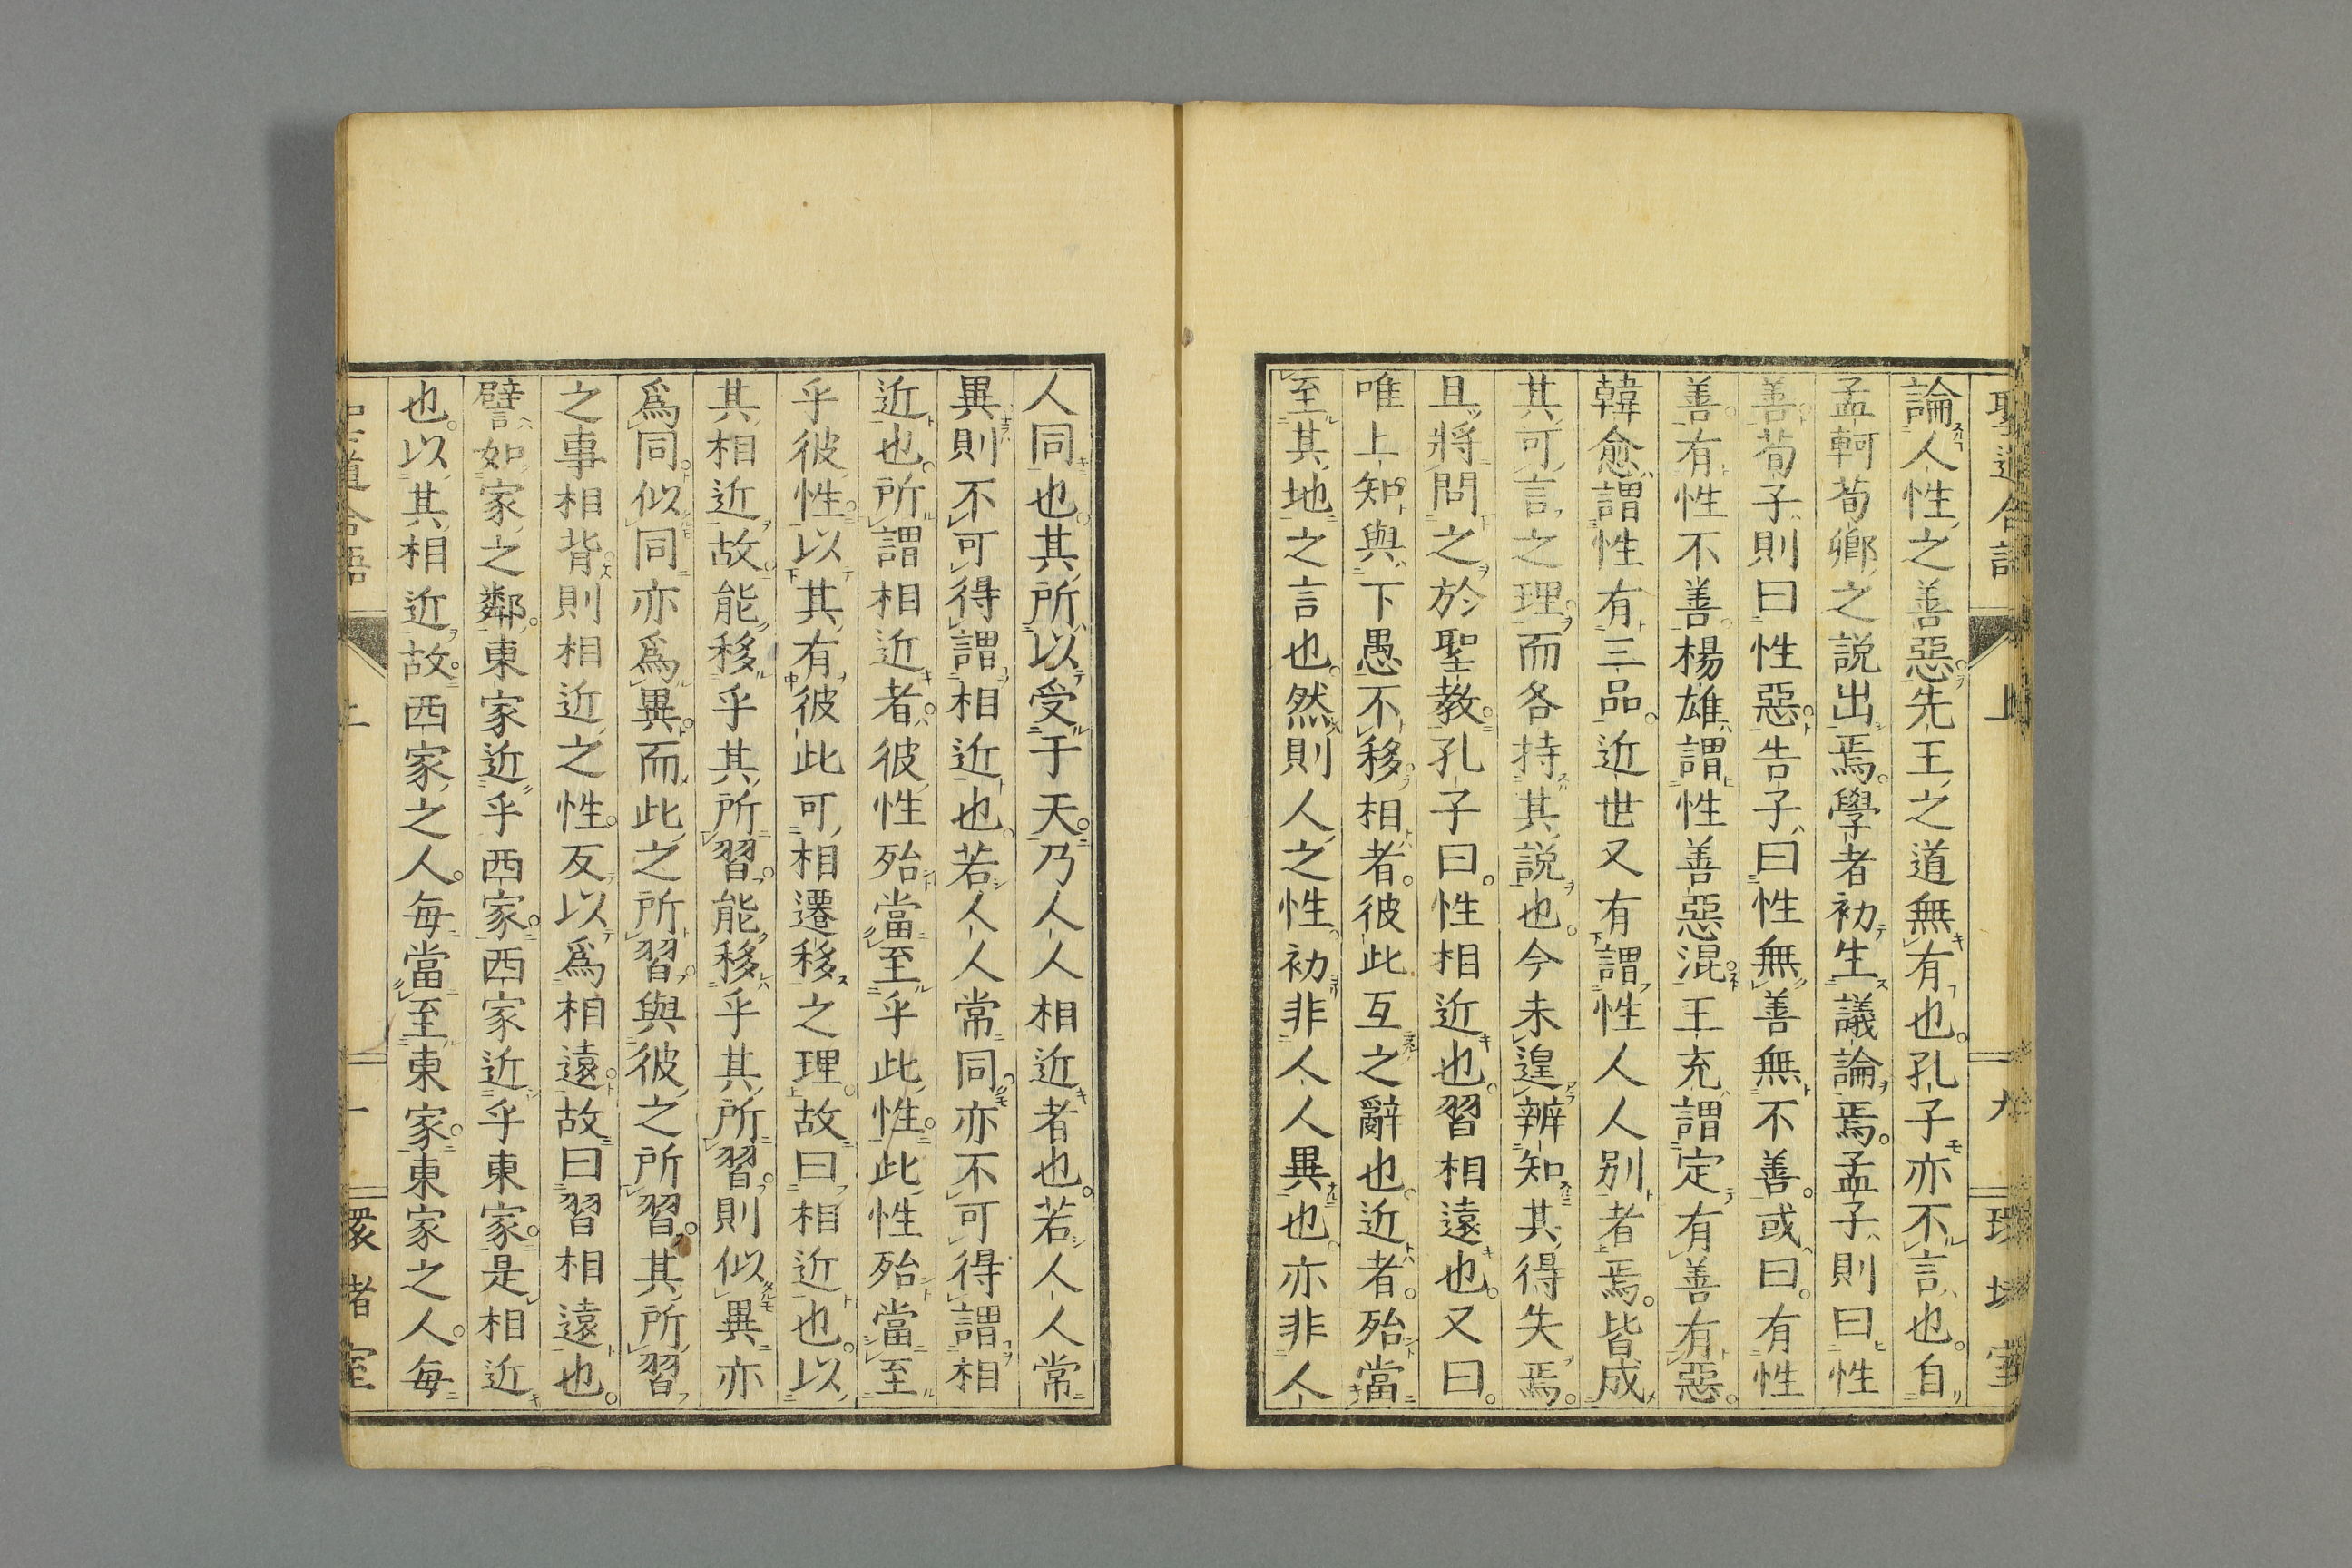 論人性之善惡先王之道無有也孔子亦不言也自
孟軻荀卿之説出焉學者初生議論焉孟子則曰性
善荀子則曰性惡告子曰性無善無不善或曰有性
善有性不善楊雄謂性善惡混王充謂定有善有惡
韓愈謂性有三品近世又有謂性人人別者焉皆成
其可言之理而各持其説也今未遑辨知其得失焉
且將問之於聖教孔子曰性相近也習相遠也又曰
唯上知與下愚不移相者彼此互之辭也近者殆當
至其地之言也然則人之性初非人人異也亦非人
人同也其所以受于天乃人人相近者也若人人常
異則不可得謂相近也若人人常同亦不可得謂相
近也所謂相近者彼性殆當至乎此性此性殆當至
乎彼性以其有彼此可相遷移之理故曰相近也以
其相近故能移乎其所習能移乎其所習則似異亦
爲同似同亦爲異而此之所習與彼之所習其所習
之事相背則相近之性反以爲相遠故曰習相遠也
譬如家之鄰東家近乎西家西家近乎東家是相近
也以其相近故西家之人每當至東家東家之人每